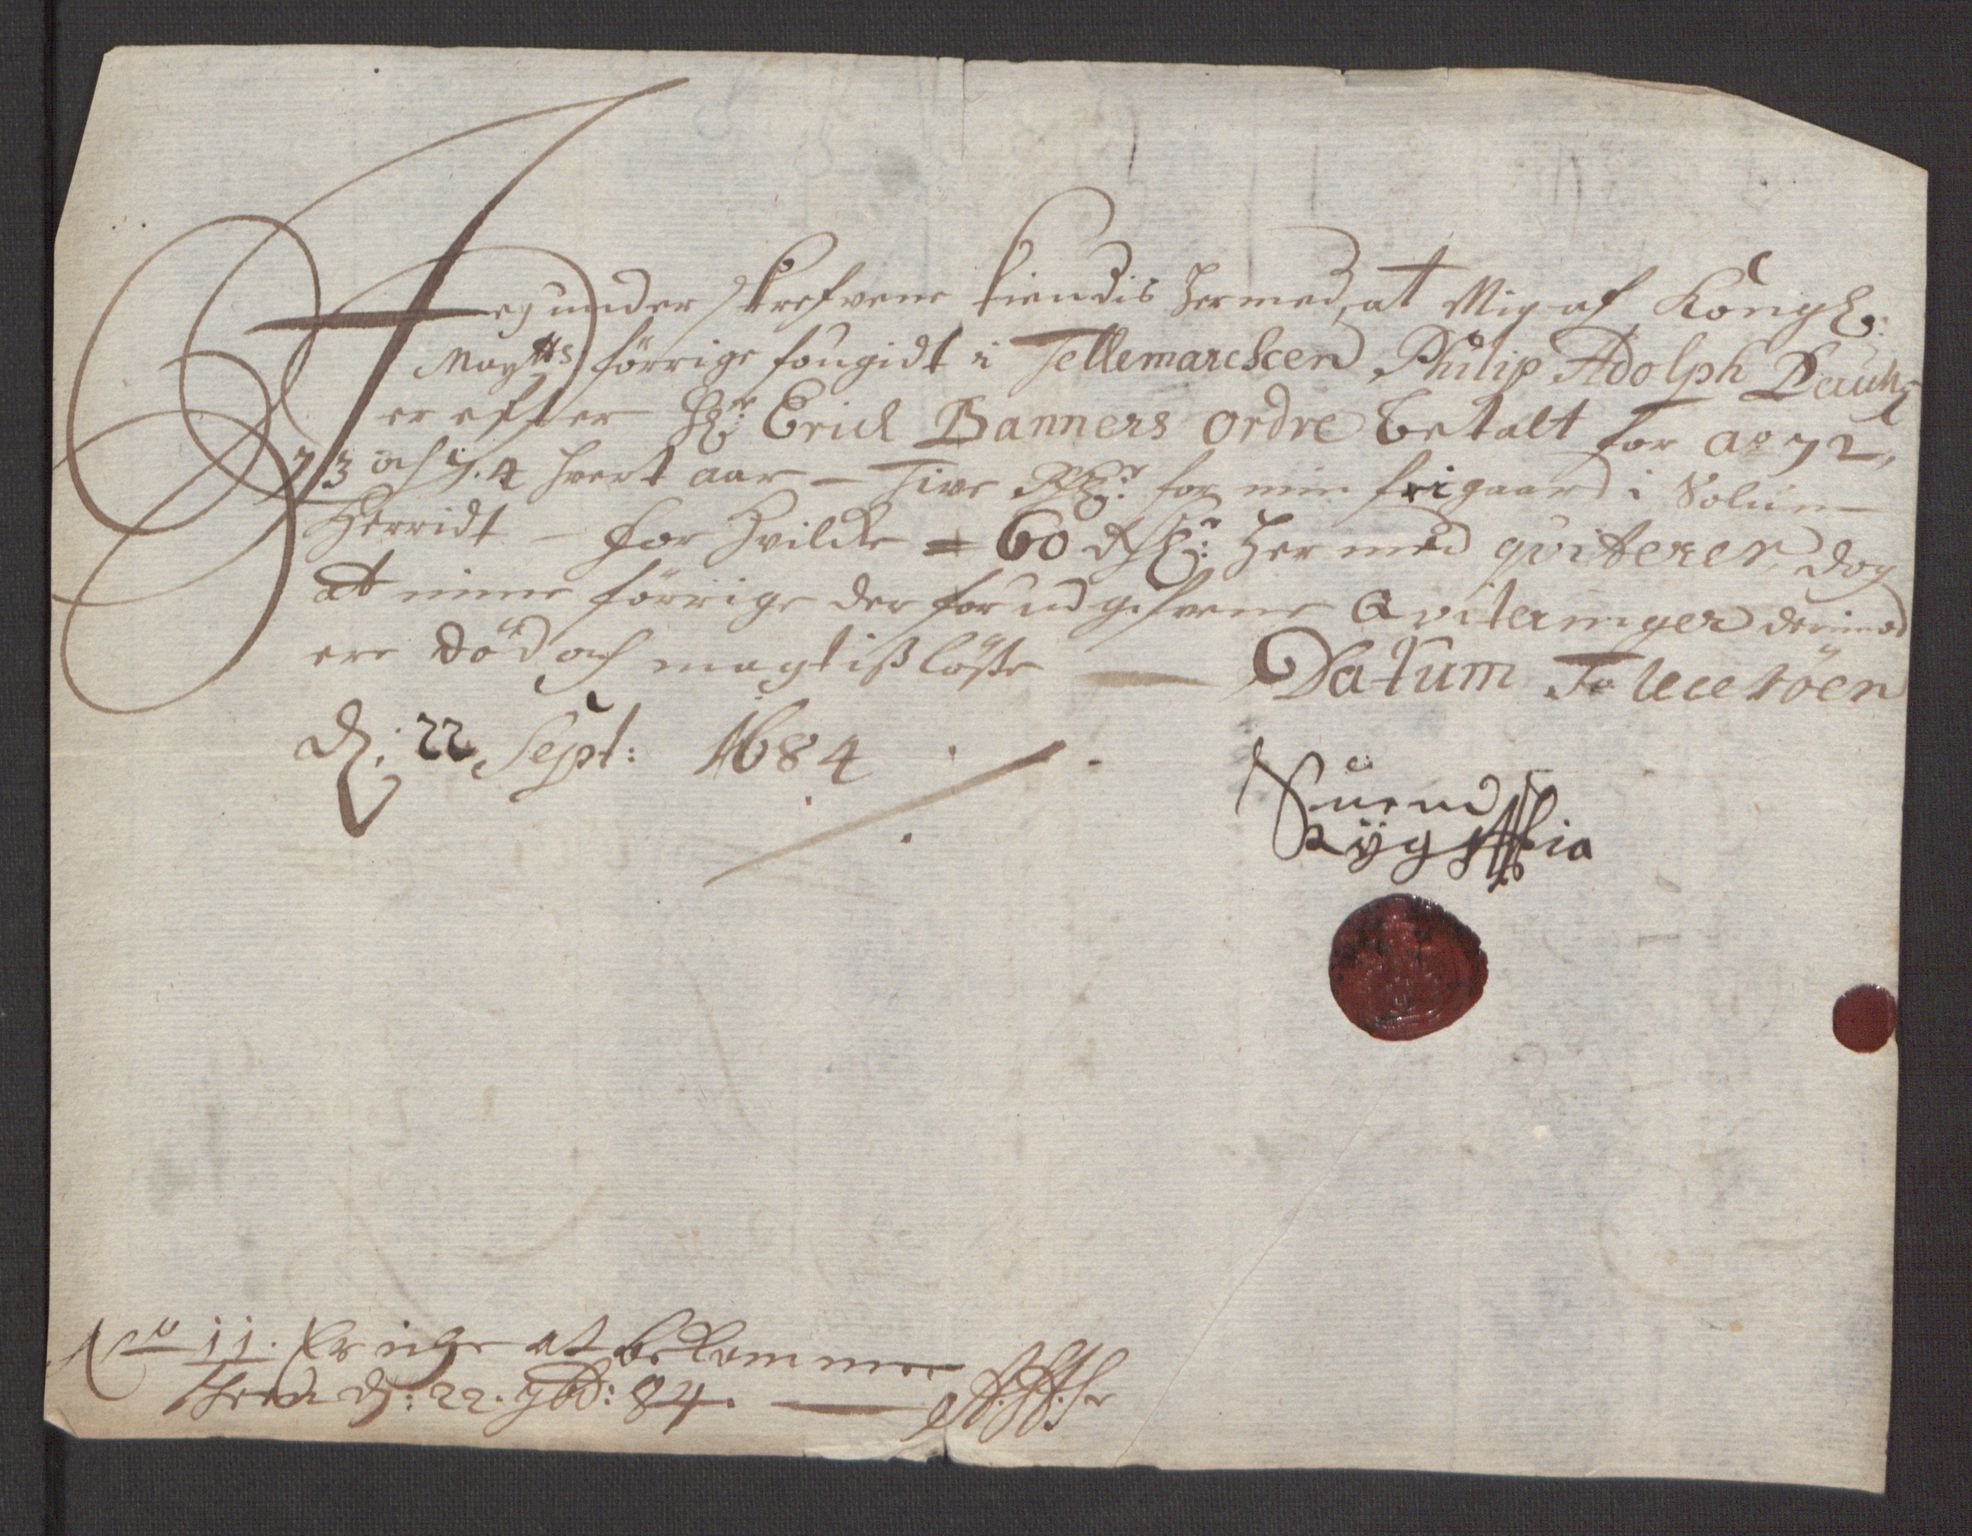 Jeg underskrefvene kiendis hermed, at Mig af Kongl:
Maytts förrige fougidt i Tellemarcken Philip Adolph
er efter Hr: Erich Banners ordre betalt for ao 72,
73 och 74 hvert aar – Tive Rdr: for min frigaard i Solum
Herridt – for hvilcke = 60 Rdr: hermed qviterer, dog
at mine förrige der for udgifvene Qviteringer derimod
ere död och magtislöse — Datum
d: 22 Sept: 1684
Suend
No 11. at bekomme
d: 22. 9bd: 84. —